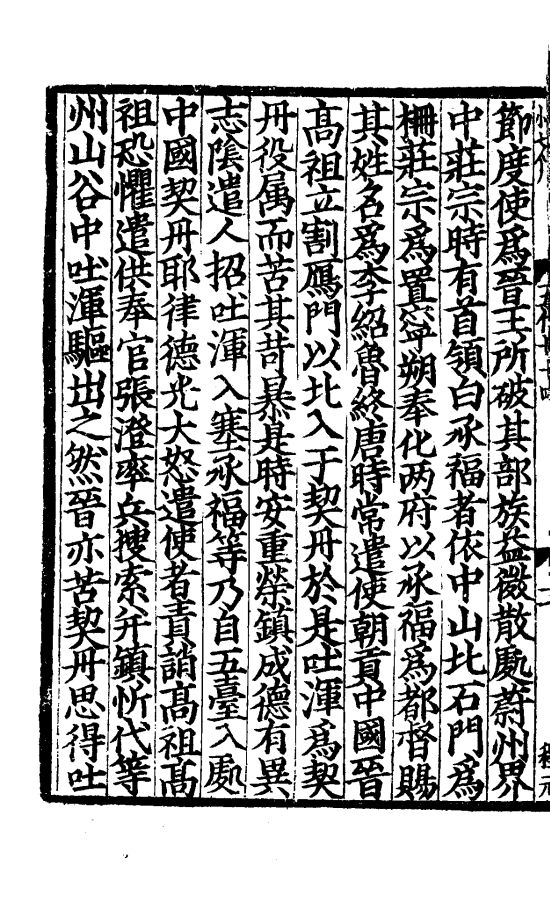 節度使爲晉王所破其部族益微散處蔚州界
中莊宗時有首領白承福者依中山北石門爲
柵莊宗爲置寜朔奉化两府以承福爲都督賜
其姓名爲李紹魯終唐時常遣使朝貢中國晉
髙祖立割鴈門以北入于契丹於是吐渾爲契
丹役属而苦其苛暴是時安重榮鎮成德有異
志隂遣人招吐渾入塞承福等乃自五臺入處
中國契丹耶律德光大怒遣使者責誚髙祖髙
祖恐懼遣供奉官張澄率兵搜索并鎮忻代等
州山谷中吐渾驅出之然晉亦苦契丹思得吐